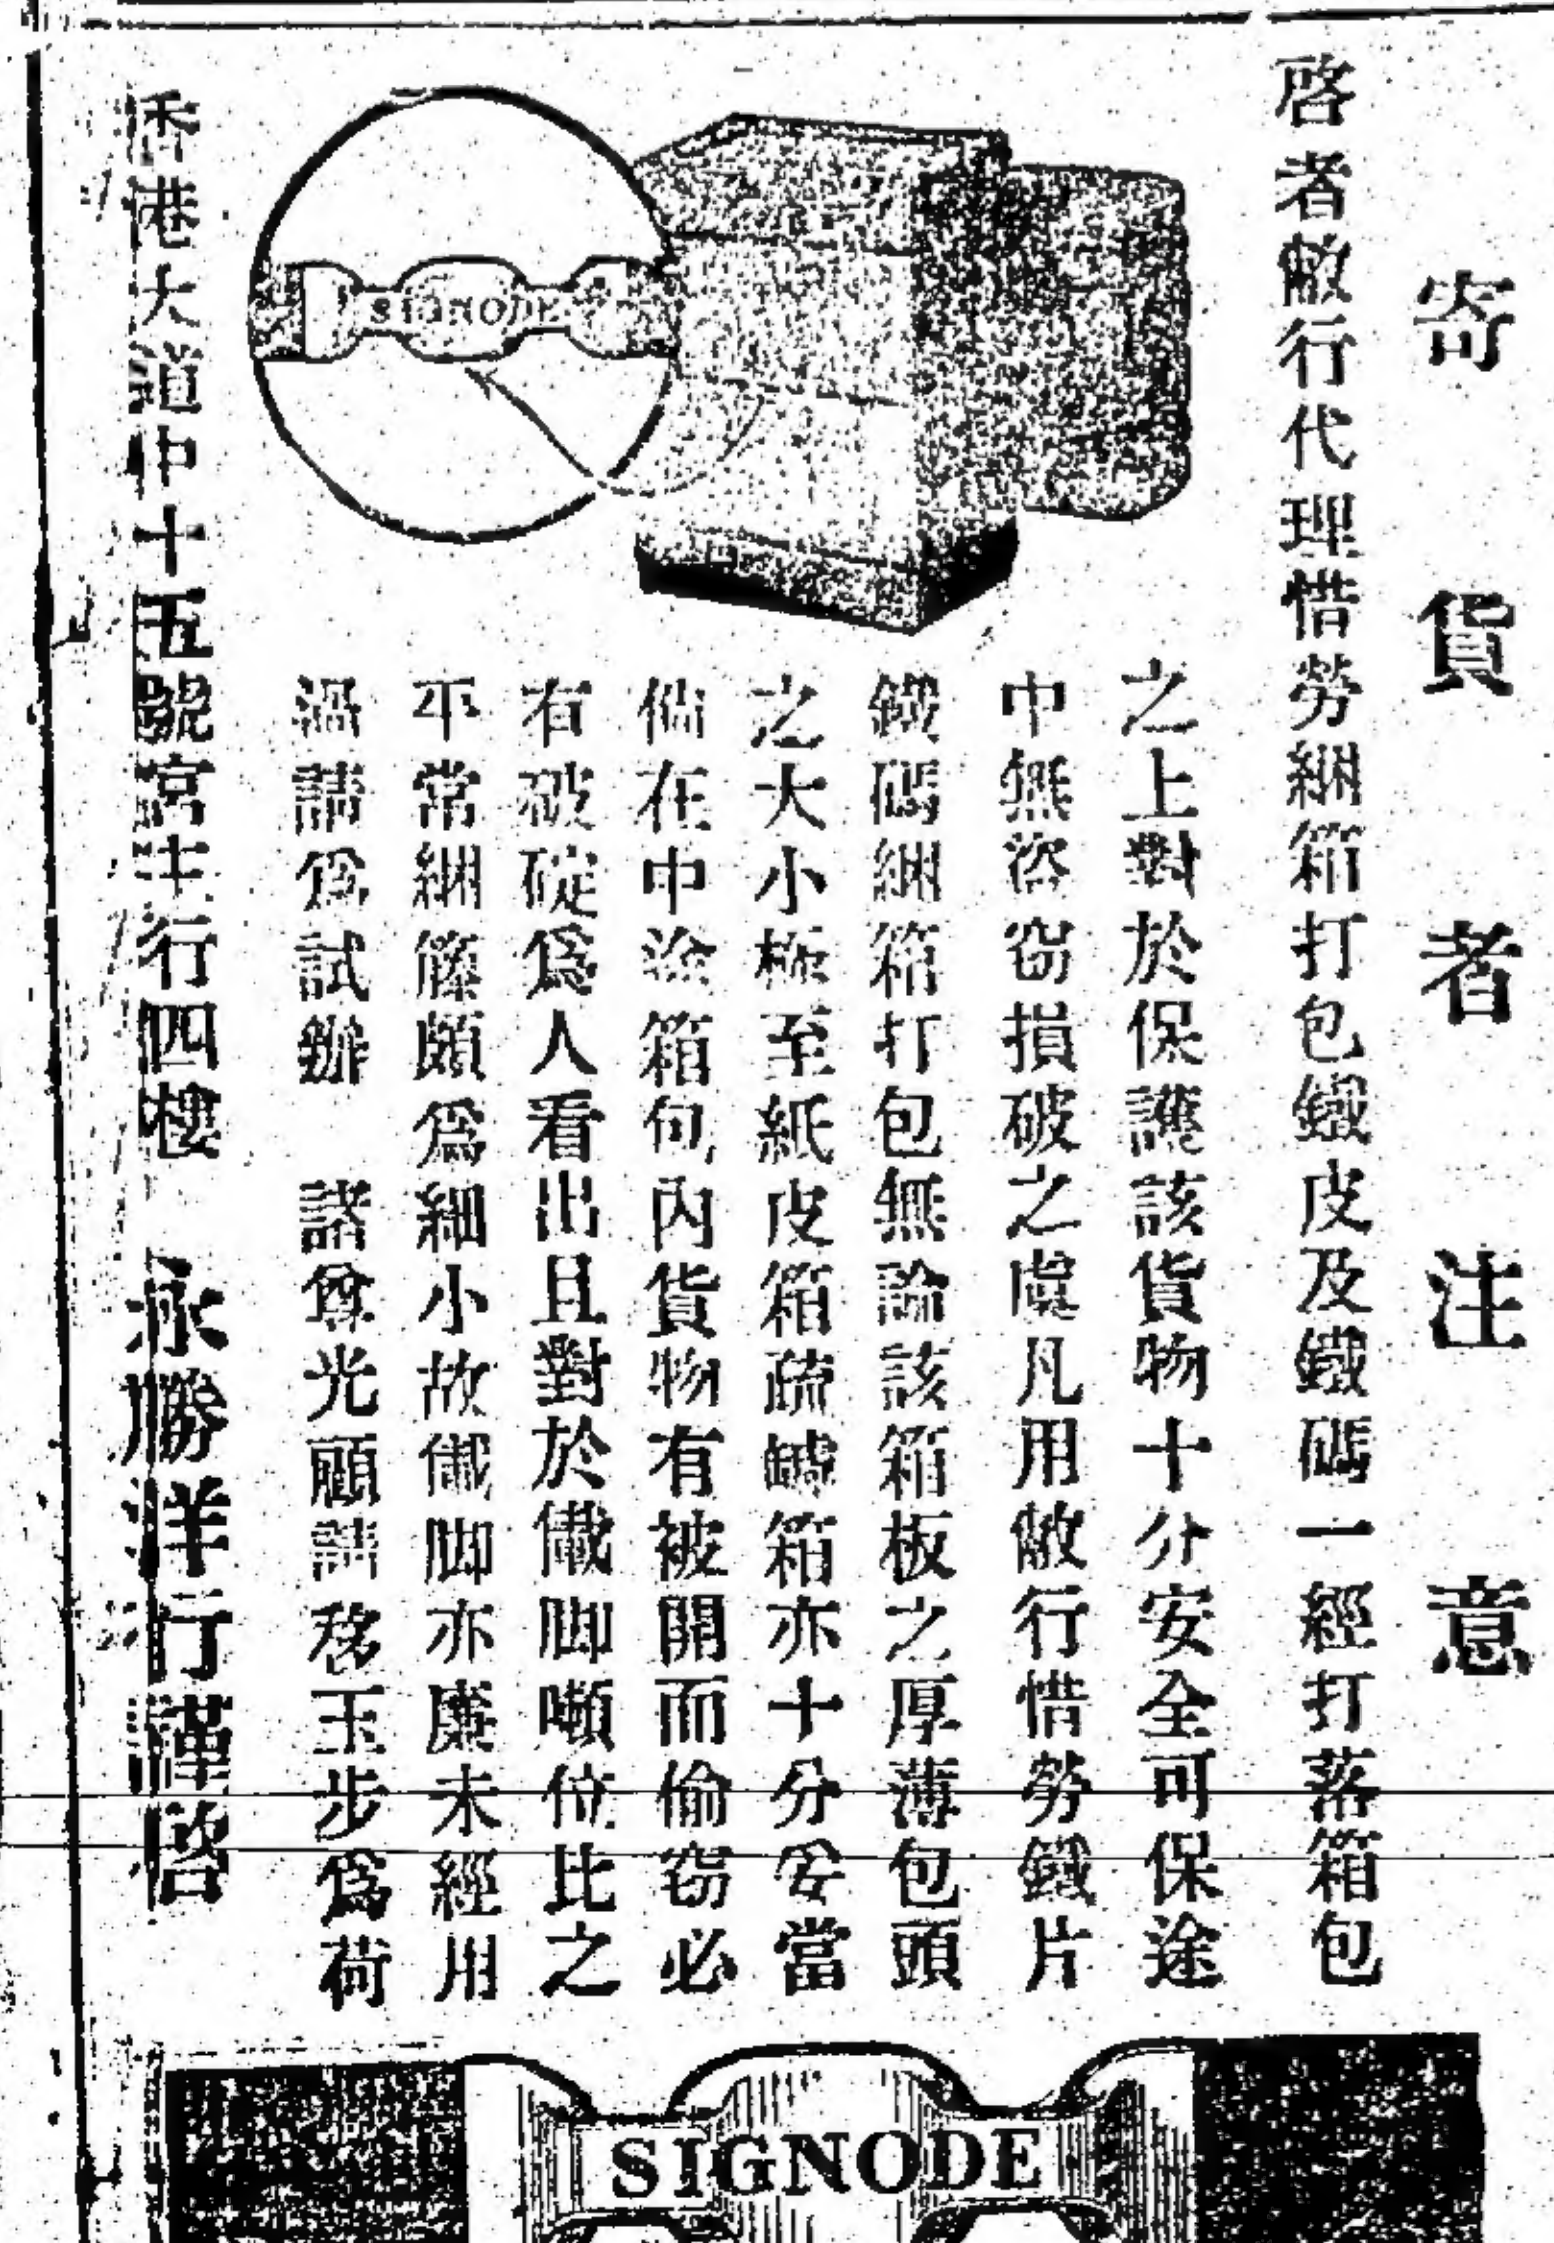 寄貨者注意
啓者敝行代理惜勞綑箱打包鐵皮及鐵碼一經打落箱包
之上對於保護該貨物十分安全可保途
中無盜窃損破之虞凡用敝行惜勞鐵片
鐵碼綑箱打包無論該箱板之厚薄包頭
之大小極至紙皮箱疏罅箱亦十分妥當
倘在中途箱包內貨物有被開而偷窃必
有破碇為人看出且對於儎脚噸位比之
平常綑籐頗為細小故儎脚亦廉未經用
過請為試辦 諸尊光顧請移玉步為荷
香港大道中十五號宮主行四樓 永勝洋行謹啓
SIGNODE
SIGNODE